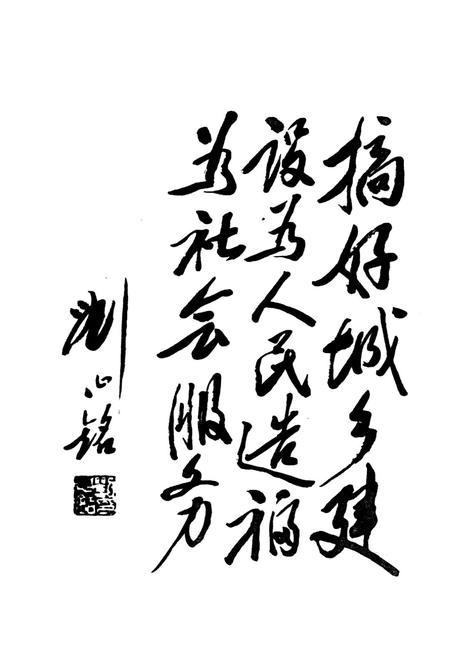 搞好城乡建
设为人民造福
为社会服务
刘心铭